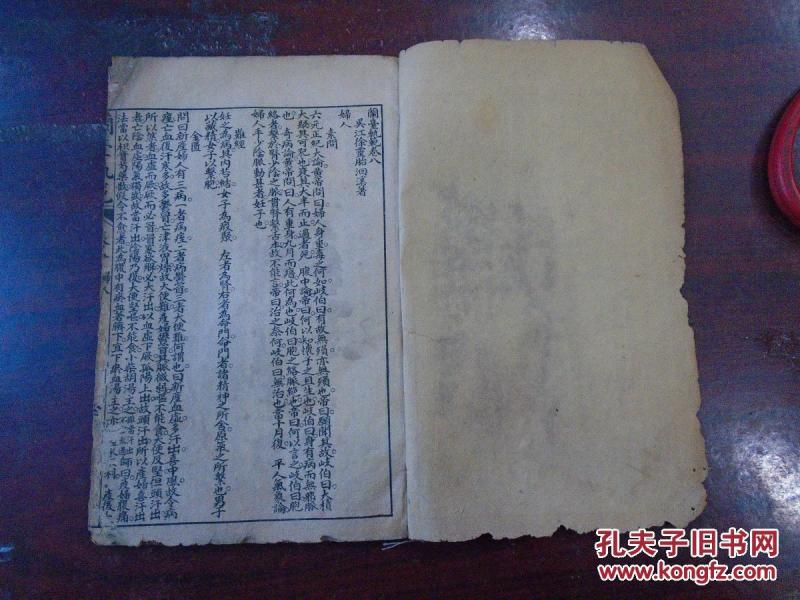 蘭臺軌範卷八
吳江徐靈胎洄溪著
婦人
素問
六元正紀大論黃帝問曰婦人身重毒之何如岐伯曰有故無殞亦無殞也帝曰願聞其故岐伯曰大積
大聚其可犯也衰其大半而止過者死 腹中論帝曰何以知懷子之且生也岐伯曰身有病而無邪脈
也 奇病論黃帝問曰人有重身九月而瘖此何為也岐伯曰胞之絡脈絕也帝曰何以言之岐伯曰胞
絡者繫於腎少陰之脈貫腎繫舌本故不能言帝曰治之奈何岐伯曰無治也當十月復 平人氣象論
婦人手少陰脈動甚者妊子也
難經
任之為病其內苦結女子為瘕聚 左者為腎右者為命門命門者諸精神之所舍原氣之所繫也男子
以藏精女子以繫胞
金匱
問曰新產婦人有三病一者病痙二者病鬱冒三者大便難何謂也曰新產血虛多汗出喜中風故令病
痙亡血復汗寒多故令鬱冒亡津液胃燥故大便難產婦鬱冒其脈微弱嘔不能食大便反堅但頭汗出
所以然者血虛而厥厥而必冒冒家欲解必大汗出以血虛下厥孤陽上出故頭汗出所以產婦喜汗出
者亡陰血虛陽氣獨盛故當汗出陰陽乃復大便堅嘔不能食小柴胡湯主之 師曰產婦腹痛
法當以枳實芍藥散假令不愈者此為腹中有瘀血著臍下宜下瘀血湯主之
孔夫子旧书网
www.kongfz.com